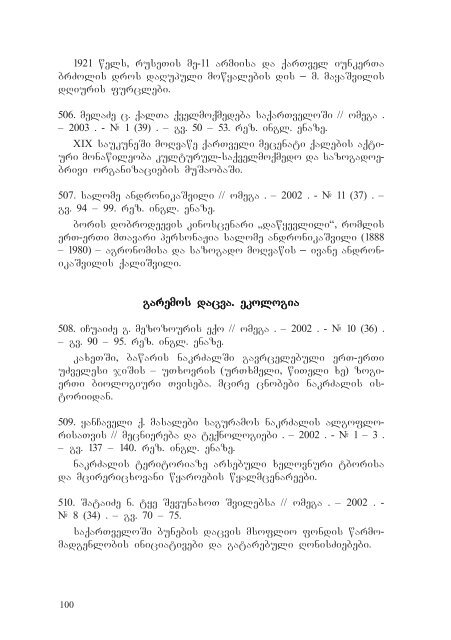 1921 წელს, რუსეთის მე-11 არმიისა და ქართველ იუნკერთა
ბრძოლის დროს დაღუპული მოწყალების დის – მ. მაყაშვილის
დღიურის ფურცლები.
506. მელაძე ც. ქალთა ქველმოქმედება საქართველოში // ომეგა .
– 2003 . - № 1 (39) . – გვ. 50 – 53. რეზ. ინგლ. ენაზე.
XIX საუკუნეში მოღვაწე ქართველი მეცენატი ქალების აქტი-
ური მონაწილეობა კულტურულ-საქველმოქმედო და საზოგადოე-
ბრივი ორგანიზაციების მუშაობაში.
507. სალომე ანდრონიკაშვილი // ომეგა . – 2002 . - № 11 (37) . –
გვ. 94 – 99. რეზ. ინგლ. ენაზე.
ბორის დობროდეევის კინოსცენარი „დაწყევლილი“, რომლის
ერთ-ერთი მთავარი პერსონაჟია სალომე ანდრონიკაშვილი (1888
– 1980) – აგრონომისა და საზოგადო მოღვაწის – ივანე ანდრონ-
იკაშვილის ქალიშვილი.
გარემოს დაცვა. ეკოლოგია
508. იჩუაიძე გ. მეზოზოურის ექო // ომეგა . – 2002 . - № 10 (36) .
– გვ. 90 – 95. რეზ. ინგლ. ენაზე.
კახეთში, ბაწარის ნაკრძალში გავრცელებული ერთ-ერთი
უძველესი ჯიშის – უთხოვრის (ურთხმელი, წითელი ხე) ზოგი-
ერთი ბიოლოგიური თვისება. მცირე ცნობები ნაკრძალის ის-
ტორიიდან.
509. ყანჩაველი ქ. მასალები საგურამოს ნაკრძალის ალგოფლო-
რისათვის // მეცნიერება და ტექნოლოგიები . – 2002 . - № 1 – 3 .
– გვ. 137 – 140. რეზ. ინგლ. ენაზე.
ნაკრძალის ტერიტორიაზე არსებული ხელოვნური ტბორისა
და მცირერიცხოვანი წყაროების წყალმცენარეები.
510. შატაიძე ნ. ტყე შევუნახოთ შვილებსა // ომეგა . – 2002 . -
№ 8 (34) . – გვ. 70 – 75.
საქართველოში ბუნების დაცვის მსოფლიო ფონდის წარმო-
მადგენლობის ინიციატივები და გატარებული ღონისძიებები.
100